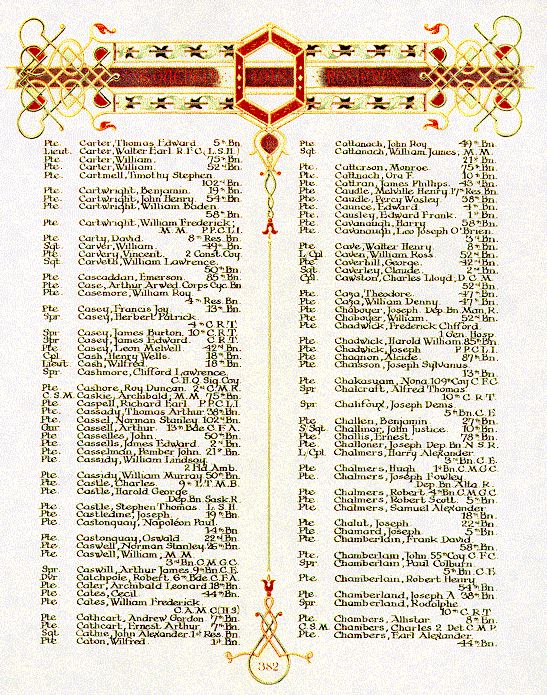 Pte. Carter, Thomas Edward 5th Bn.
Lieut. Carter, Walter Earl R.F.C. (L.S.H.)
Pte. Carter, William 75th Bn.
Pte. Carter, William 52nd Bn.
Pte. Cartmell, Timothy Stephen
102nd Bn.
Pte. Cartwright, Benjamin 19th Bn.
Pte. Cartwright, John Henry 54th Bn.
Pte. Cartwright, William Boden
58th Bn.
Pte. Cartwright, William Frederick;
M.M. P.P.C.L.I.
Pte. Carty, David 8th Res. Bn.
Sgt. Carver, William 49th Bn.
Pte. Carvery, Vincent 2 Const. Coy.
Sgt. Carveth, William Lawrence
50th Bn.
Pte. Cascaddan, Emerson 85th Bn.
Pte. Case, Arthur Arwed Corps Cyc. Bn
Pte. Casemore, William Roy
4th Res. Bn.
Pte. Casey, Francis Joy 13th Bn.
Spr. Casey, Herbert Patrick
4th C.R.T.
Spr. Casey, James Burton 10th C.R.T.
Spr. Casey, James Edward C.R.T.
Pte. Casey, Leon Melvell 42nd Bn.
Cpl. Cash, Henry Wells 18th Bn.
Lieut. Cash, Wilfred 18th Bn.
Spr. Cashmore, Clifford Lawrence
C.H.Q. Sig. Coy.
Pte. Cashore, Roy Duncan 2nd C.M.R.
C.S.M. Caskie, Archibald; M.M. 75th Bn.
Pte. Caspell, Richard Earl P.P.C.L.I.
Pte. Cassady, Thomas Arthur 38th Bn.
Pte. Cassel, Norman Stanley 102nd Bn.
Gnr. Cassell, Arthur 13th Bde C.F.A.
Pte. Casselles, John 50th Bn.
Pte. Cassells, James Edward 2nd Bn.
Pte. Casselman, Pember John 21st Bn.
Pte. Cassidy, William Lindsay
2 Fld. Amb.
Pte. Cassidy, William Murray 50th Bn.
Pte. Castle, Charles 9th L.T.M.B.
Pte. Castle, Harold George
Dep. Bn. Sask. R.
Pte. Castle, Stephen Thomas L.S.H.
Pte. Castledine, Joseph 19th Bn.
Pte. Castonquay, Napoléon Paul
14th Bn.
Pte. Castonquay, Oswald 22nd Bn.
Pte. Caswell, Norman Stanley 16th Bn.
Pte. Caswell, William; M.M.
3rd Bn. C.M.G.C.
Spr. Caswill, Arthur James 9th Bn. C.E.
Dvr. Catchpole, Robert 6th Bde. C.F.A.
Pte. Cater, Archibald Leonard 18th Bn.
Pte. Cates, Cecil 44th Bn.
Pte. Cates, William Frederick
C.A.M.C. (H.S)
Pte. Cathcart, Andrew Gordon 7th Bn.
Pte. Cathcart, Ernest Arthur 7th Bn.
Sgt. Cathie, John Alexander 1st Res. Bn.
Pte. Caton, Wilfred 1st Bn.
Pte. Cattanach, John Roy 49th Bn.
Sgt. Cattanach, William James; M.M.
21st Bn.
Pte. Catterson, Monroe 75th Bn.
Pte. Cattnach, Ora F. 10th Bn.
Pte. Cattran, James Phillips 43rd Bn.
Pte. Caudle, Melville Henry 17th Res. Bn.
Pte. Caudle, Percy Wasley 38th Bn.
Pte. Caunce, Edward 4th Bn.
Pte. Causley, Edward Frank 1st Bn.
Pte. Cavanaugh, Harry 58th Bn.
Pte. Cavanaugh, Leo Joseph O'Brien
5th Bn.
Pte. Cave, Walter Henry 8th Bn.
L/Cpl. Caven, William Ross 52nd Bn.
Pte. Caverhill, George 42nd Bn.
Sgt. Caverley, Claude 2nd Bn.
Cpl. Cawston, Charles Lloyd; D.C.M.
52nd Bn.
Pte. Caza, Theodore 47th Bn.
Pte. Caza, William Denny 47th Bn.
Pte. Chaboyer, Joseph Dep. Bn. Man. R.
Pte. Chaboyer, William 52nd Bn.
Pte. Chadwick, Frederick Clifford
1 Gen. Hosp.
Pte. Chadwick, Harold William 85th Bn.
Pte. Chadwick, Joseph P.P.C.L.I.
Pte. Chagnon, Alcide 87th Bn.
Pte. Chaisson, Joseph Sylvanus
13th Bn.
Pte. Chakasyam, Nona 109th Coy C.F.C.
Spr. Chalcraft, Alfred Thomas
10th C.R.T.
Spr. Chalifoux, Joseph Denis
5th Bn. C.E.
Pte. Challen, Benjamin 27th Bn.
S/Sgt. Challinor, John Justice 10th Bn.
Pte. Challis, Ernest 78th Bn.
Pte. Challoner, Joseph Dep. Bn. N.S.R.
L/Cpl. Chalmers, Harry Alexander
3rd Bn. C.E.
Pte. Chalmers, Hugh 1st Bn. C.M.G.C.
Pte. Chalmers, Joseph Fowley
Dep. Bn. Alta. R.
Pte. Chalmers, Robert 4th Bn. C.M.G.C.
Pte. Chalmers, Robert Scott 5th Bn.
Pte. Chalmers, Samuel Alexander
18th Bn.
Pte. Chalut, Joseph 22nd Bn.
Pte. Chamard, Joseph 5th Bn.
Pte. Chamberlain, Frank David
58th Bn.
Pte. Chamberlain, John 55th Coy C.F.C.
Spr. Chamberlain, Paul Colburn
5th Bn. C.E.
Pte. Chamberlain, Robert Henry
54th Bn.
Pte. Chamberland, Joseph A. 38th Bn.
Spr. Chamberland, Rodolphe
10th C.R.T.
Pte. Chambers, Allistar 8th Bn.
C.S.M. Chambers, Charles 2 Det. C.M.P.
Pte. Chambers, Earl Alexander
44th Bn.
382